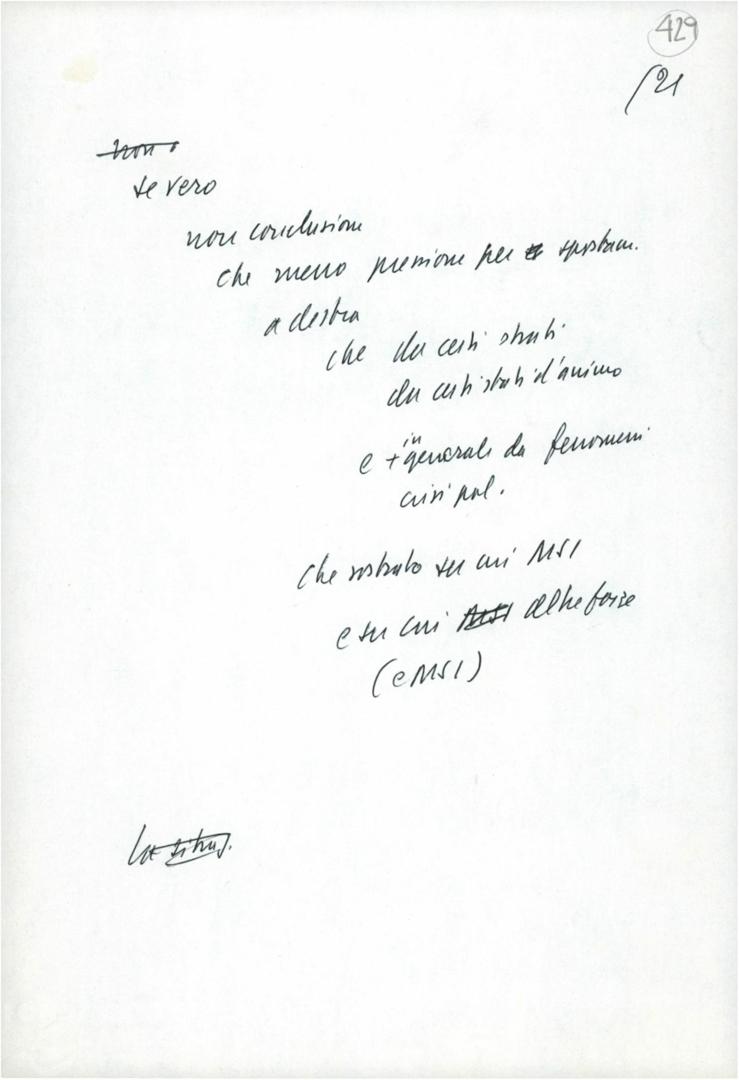 429
/21
non
se vero
non conclusione
che meno pressione per spostam.
a destra
che da certi strati
da certi stati d'animo
e + in generale da fenomeni
crisi pol.
che sostrato su cui MSI
e su cui MSI altre forze
(e MSI)
La situaz.